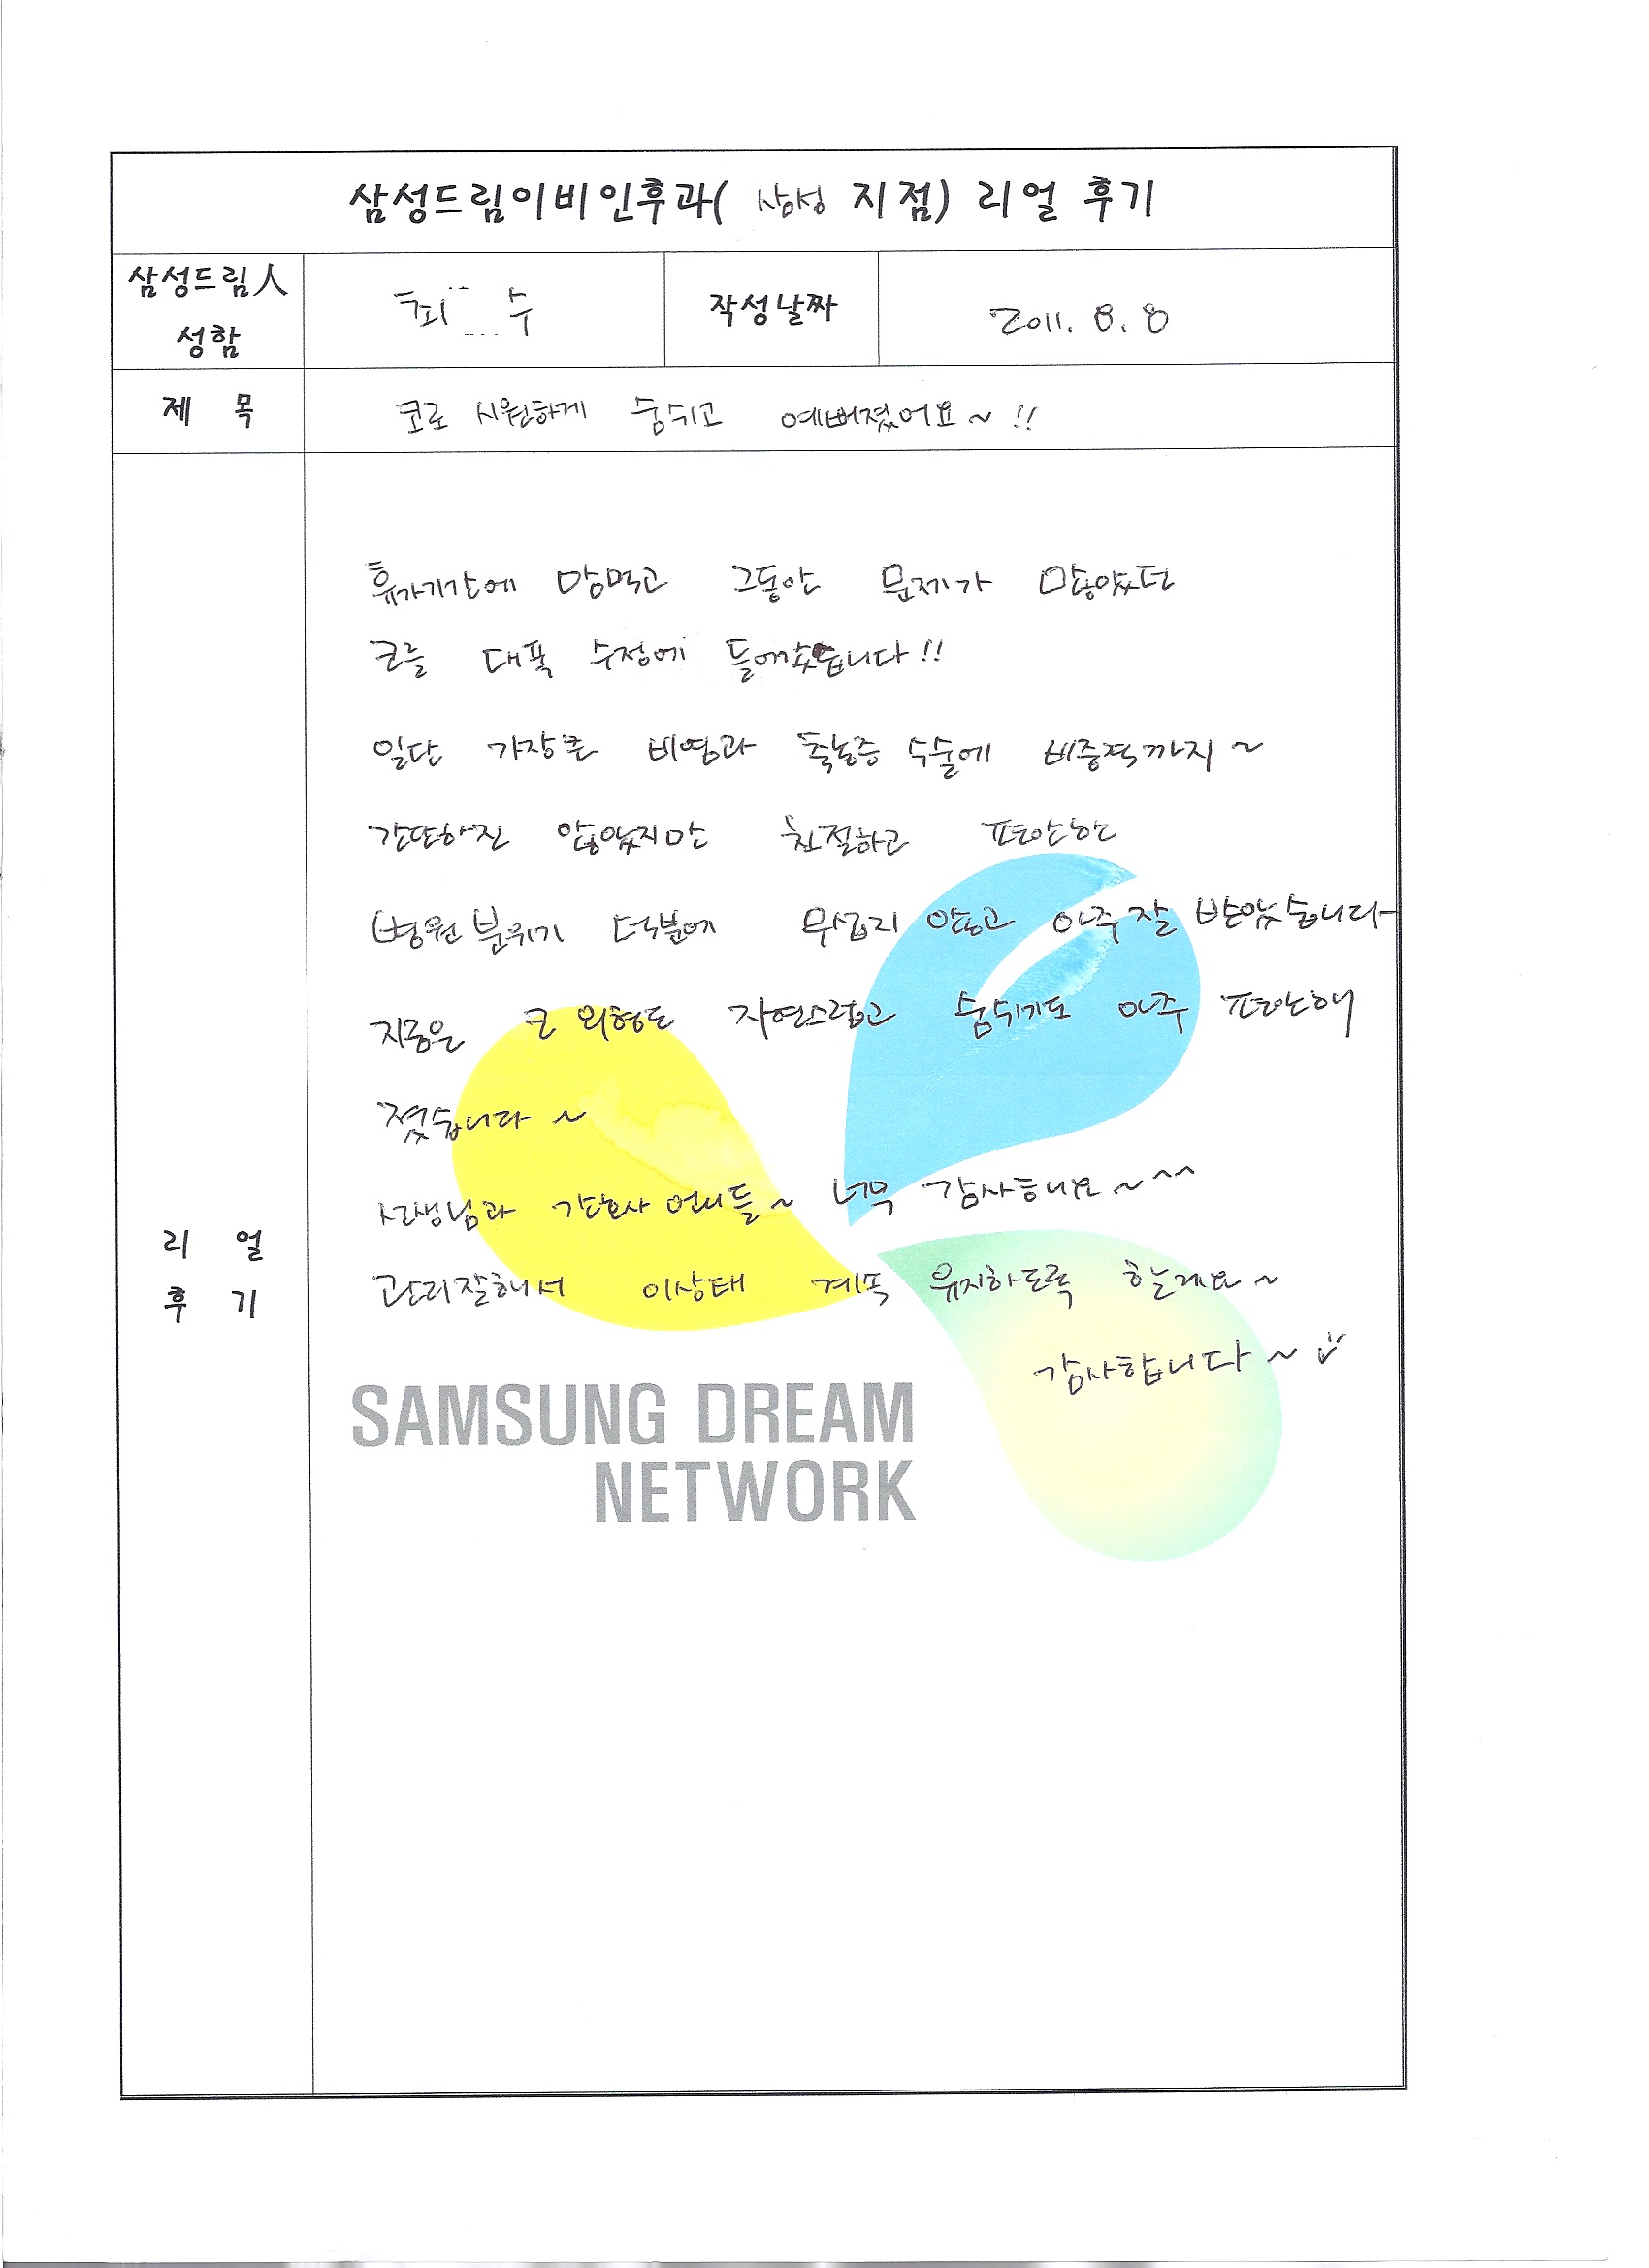 삼성드림이비인후과( 삼성 지점) 리얼 후기
삼성드림人
성함
최 수
작성날짜
2011. 8. 8
제 목
코로 시원하게 숨쉬고 예뻐졌어요~!!
휴가기간에 맘먹고 그동안 문제가 많았던
코를 대폭 수정에 들어갔습니다!!
일단 가장큰 비염과 축농증 수술에 비중격까지~
간단하진 않았지만 친절하고 편안한
병원분위기 덕분에 무섭지 않고 아주 잘 받았습니다
지금은 코 외형도 자연스럽고 숨쉬기도 아주 편안해
졌습니다~
선생님과 간호사 언니들~ 너무 감사해요~^^
관리잘해서 이상태 계속 유지하도록 할게요~
감사합니다~
리 얼
후 기
SAMSUNG DREAM
NETWORK